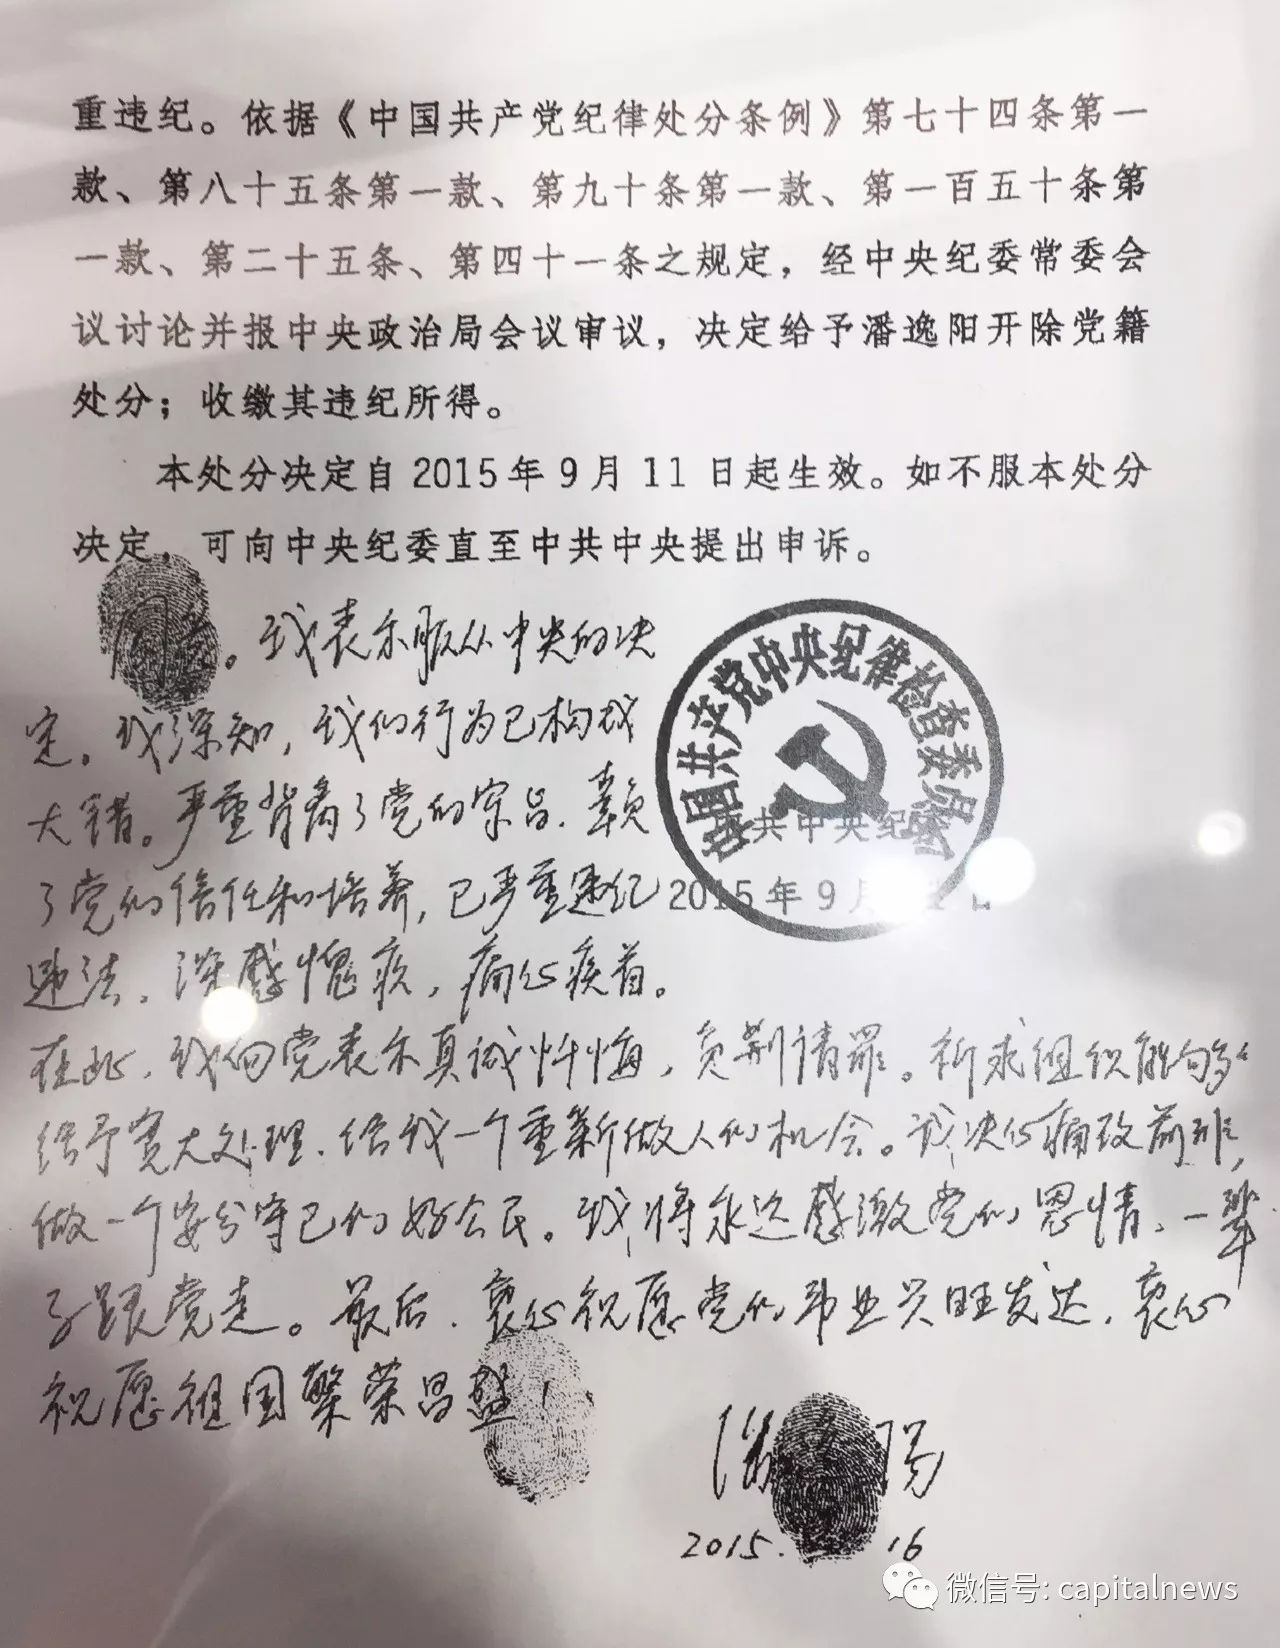 重违纪。依据《中国共产党纪律处分条例》第七十四条第一
款、第八十五条第一款、第九十条第一款、第一百五十条第
一款、第二十五条、第四十一条之规定，经中央纪委常委会
议讨论并报中央政治局会议审议，决定给予潘逸阳开除党籍
处分；收缴其违纪所得。
本处分决定自2015年9月11日起生效。如不服本处分
决定，可向中央纪委直至中共中央提出申诉。
同意。我表示服从中央的决
定。我深知，我的行为已构成
大错。严重背离了党的宗旨、辜负
了党的信任和培养，已严重违纪
违法、深感愧疚，痛心疾首。
中国共产党中央纪律检查委员会
中共中央纪
2015年9月
在此，我向党表示真诚忏悔，负荆请罪。祈求组织能够
给予宽大处理、给我一个重新做人的机会。我决心痛改前非，
做一个安分守己的好公民。我将永远感激党的恩情、一辈
子跟党走。最后、衷心祝愿党的事业兴旺发达、衷心
祝愿祖国繁荣昌盛！
潘逸阳
2015. 16
微信号: capitalnews